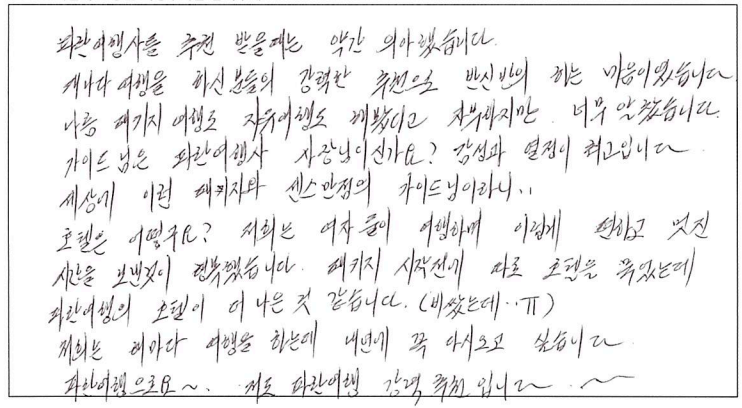 파란여행사를 추천 받을때는 약간 의아했습니다.
캐나다 여행을 하신분들의 강력한 추천으로 반신반의 하는 마음이였습니다
나름 패키지 여행도 자유여행도 해봤다고 자부하지만. 너무 알찼습니다.
가이드 님은 파란여행사 사장님이신가요? 감성과 열정이 최고입니다~
세상에 이런 패키지와 센스만점의 가이드님이라니..
호텔은 어떻구요? 저희는 여자 둘이 여행하며 이렇게 편하고 멋진
시간을 보낸것이 행복했습니다. 패키지 시작전에 따로 호텔을 묵었는데
파란여행의 호텔이 더 나은 것 같습니다. (비쌌는데..ㅠ)
저희는 해마다 여행을 하는데 내년에 꼭 다시오고 싶습니다~
파란여행으로요~. 저도 파란여행 강력 추천 입니다~.~